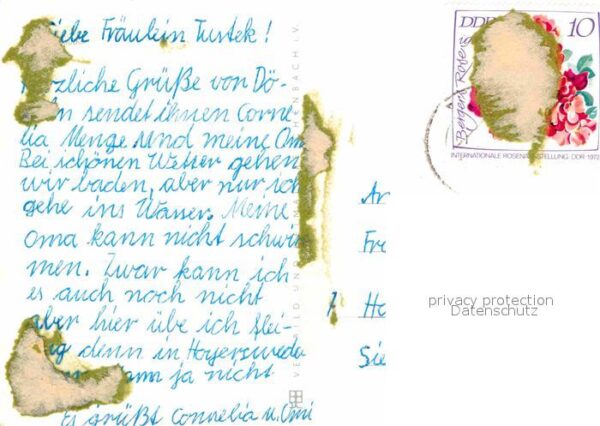 Liebe Fräulein Tustek!
Herzliche Grüße von Dö-
sendet ihnen Corne-
lia Menge und meine Om
Bei schönen Wetter gehen
wir baden, aber nur ich
gehe ins Wasser. Meine
Oma kann nicht schwim
men. Zwar kann ich
es auch noch nicht
aber hier übe ich flei-
ßig denn in Hoyerswerda
ja nicht
Es grüßt Cornelia u. Omi
DDR 10
Bergers Rose
INTERNATIONALE ROSENAUSSTELLUNG DDR 1972
Fr
Ho
Sie
privacy protection
Datenschutz